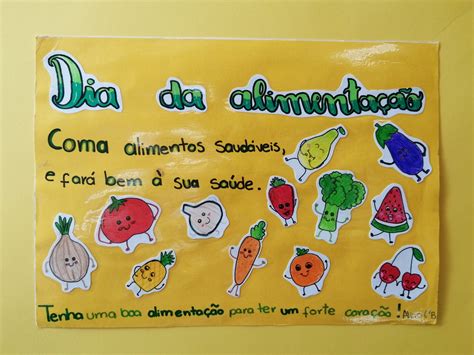 Dia da alimentação
Coma alimentos saudáveis,
e fará bem à sua saúde.
Tenha uma boa alimentação para ter um forte coração!